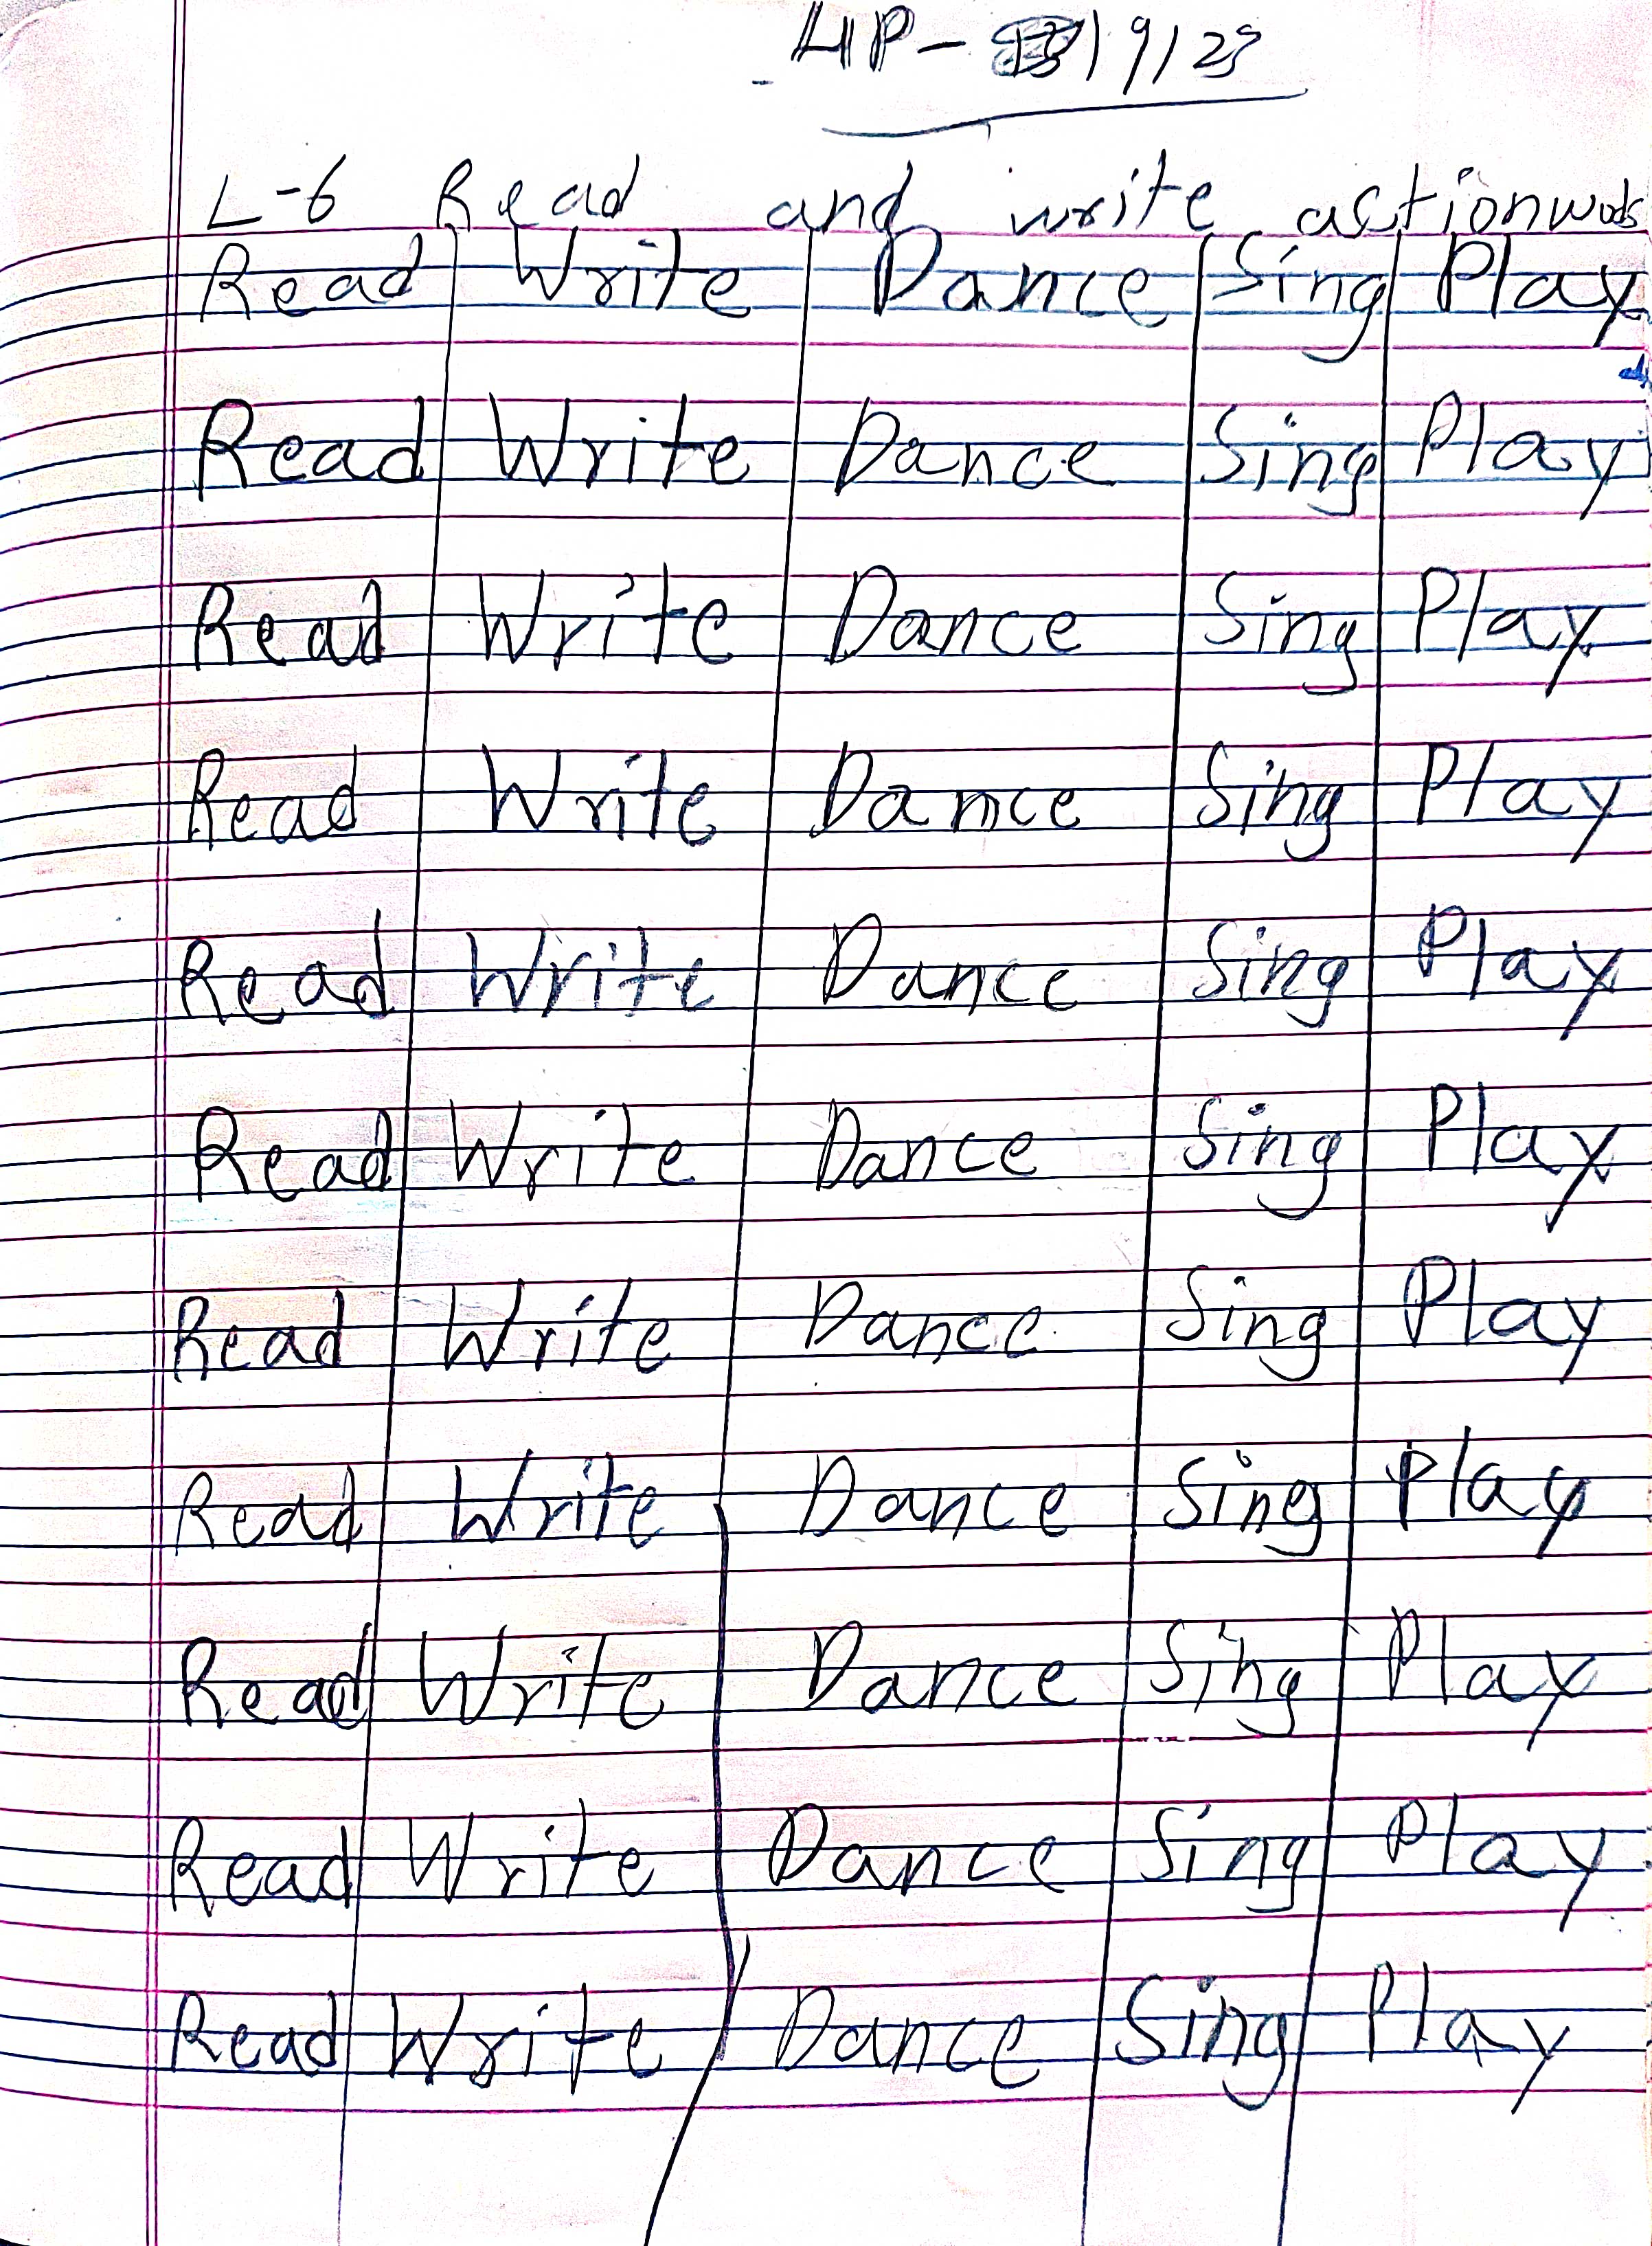 HP - /9/23
L-6 Read and write actionwods
Read Write Dance Sing Play
Read Write Dance Sing Play
Read Write Dance Sing Play
Read Write Dance Sing Play
Read Write Dance Sing Play
Read Write Dance Sing Play
Read Write Dance Sing Play
Read Write Dance Sing Play
Read Write Dance Sing Play
Read Write Dance Sing Play
Read Write Dance Sing Play